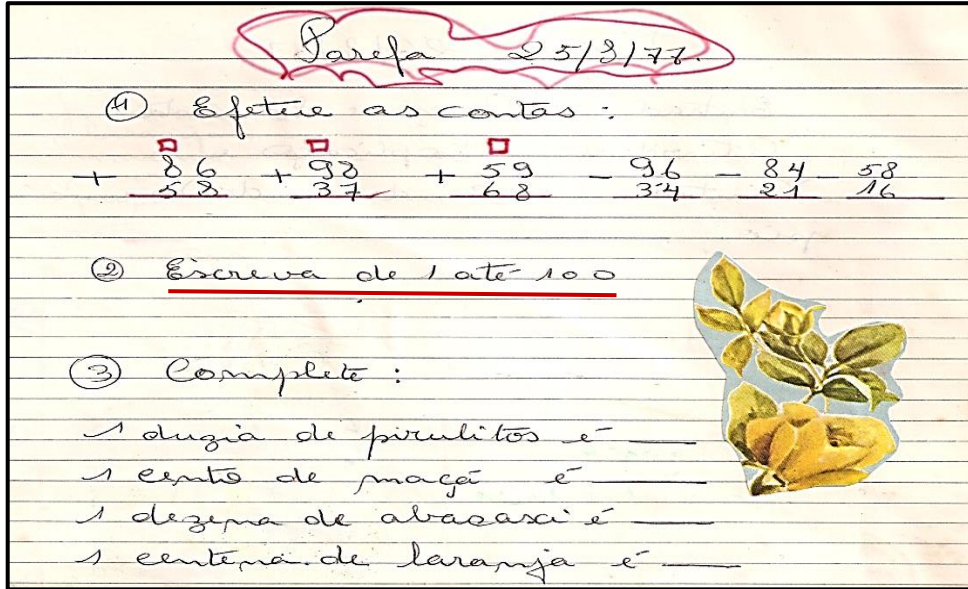 Tarefa 25/3/77.
① Efetue as contas:
+ 86 + 98 + 59 - 96 - 84 - 58
58 37 68 34 21 16
② Escreva de 1 até 100
③ Complete:
1 duzia de pirulitos é ____
1 cento de maçã é ____
1 dezena de abacaxi é ____
1 centena de laranja é ____